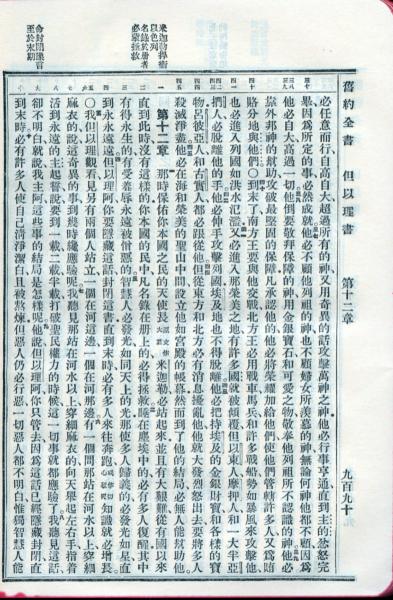 舊約全書 但以理書 第十二章 九百九十
必任意而行自高自大超過所有的神又用奇異的話攻擊萬神之神他必行事亨通直到主的忿怒完
畢因為所定的事必然成就他必不顧他列祖的神也不顧婦女所羨慕的神無論何神他都不顧因為
他必自大高過一切他倒要敬拜保障的神用金銀寶石和可愛之物敬奉他列祖所不認識的神他必
靠外邦神的幫助攻破最堅固的保障凡承認他的他必將榮耀加給他們使他們管轄許多人又為賄
賂分地與他們○到末了南方王要與他交戰北方王必用戰車馬兵和許多戰船勢如暴風來攻擊他
也必進入列國如洪水氾濫又必進入那榮美之地有許多國就被傾覆但以東人摩押人和一大半亞
捫人必脫離他的手他必伸手攻擊列國埃及地也不得脫離他必把持埃及的金銀財寶和各樣的寶
物呂彼亞人和古實人都必跟從他但從東方和北方必有消息擾亂他他就大發烈怒出去要將多人
殺滅淨盡他必在海和榮美的聖山中間設立他如宮殿的帳幕然而到了他的結局必無人能幫助他
米迦勒捍衛
以色列
名錄於册者
必蒙拯救
第十二章 那時保佑你本國之民的天使長米迦勒必站起來並且有大艱難從有國以來
直到此時沒有這樣的你本國的民中凡名錄在册上的必得拯救睡在塵埃中的必有多人復醒其中
有得永生的有受羞辱永遠被憎惡的智慧人必發光如同天上的光那使多人歸義的必發光如星直
命封閉豫言
至於末期
到永永遠遠但以理阿你要隱藏這話封閉這書直到末時必有多人來往奔跑知識就必增長
○我但以理觀看見另有兩個人站立一個在河這邊一個在河那邊有一個問那站在河水以上穿細
麻衣的說這奇異的事到幾時纔應驗呢我聽見那站在河水以上穿細麻衣的向天舉起左右手指着
活到永遠的主起誓說要到一載二載半載打破聖民權力的時候這一切事就都應驗了我聽見這話
卻不明白就說我主阿這些事的結局是怎樣呢他說但以理阿你只管去因為這話已經隱藏封閉直
到末時必有許多人使自己清淨潔白且被熬煉但惡人仍必行惡一切惡人都不明白惟獨智慧人能